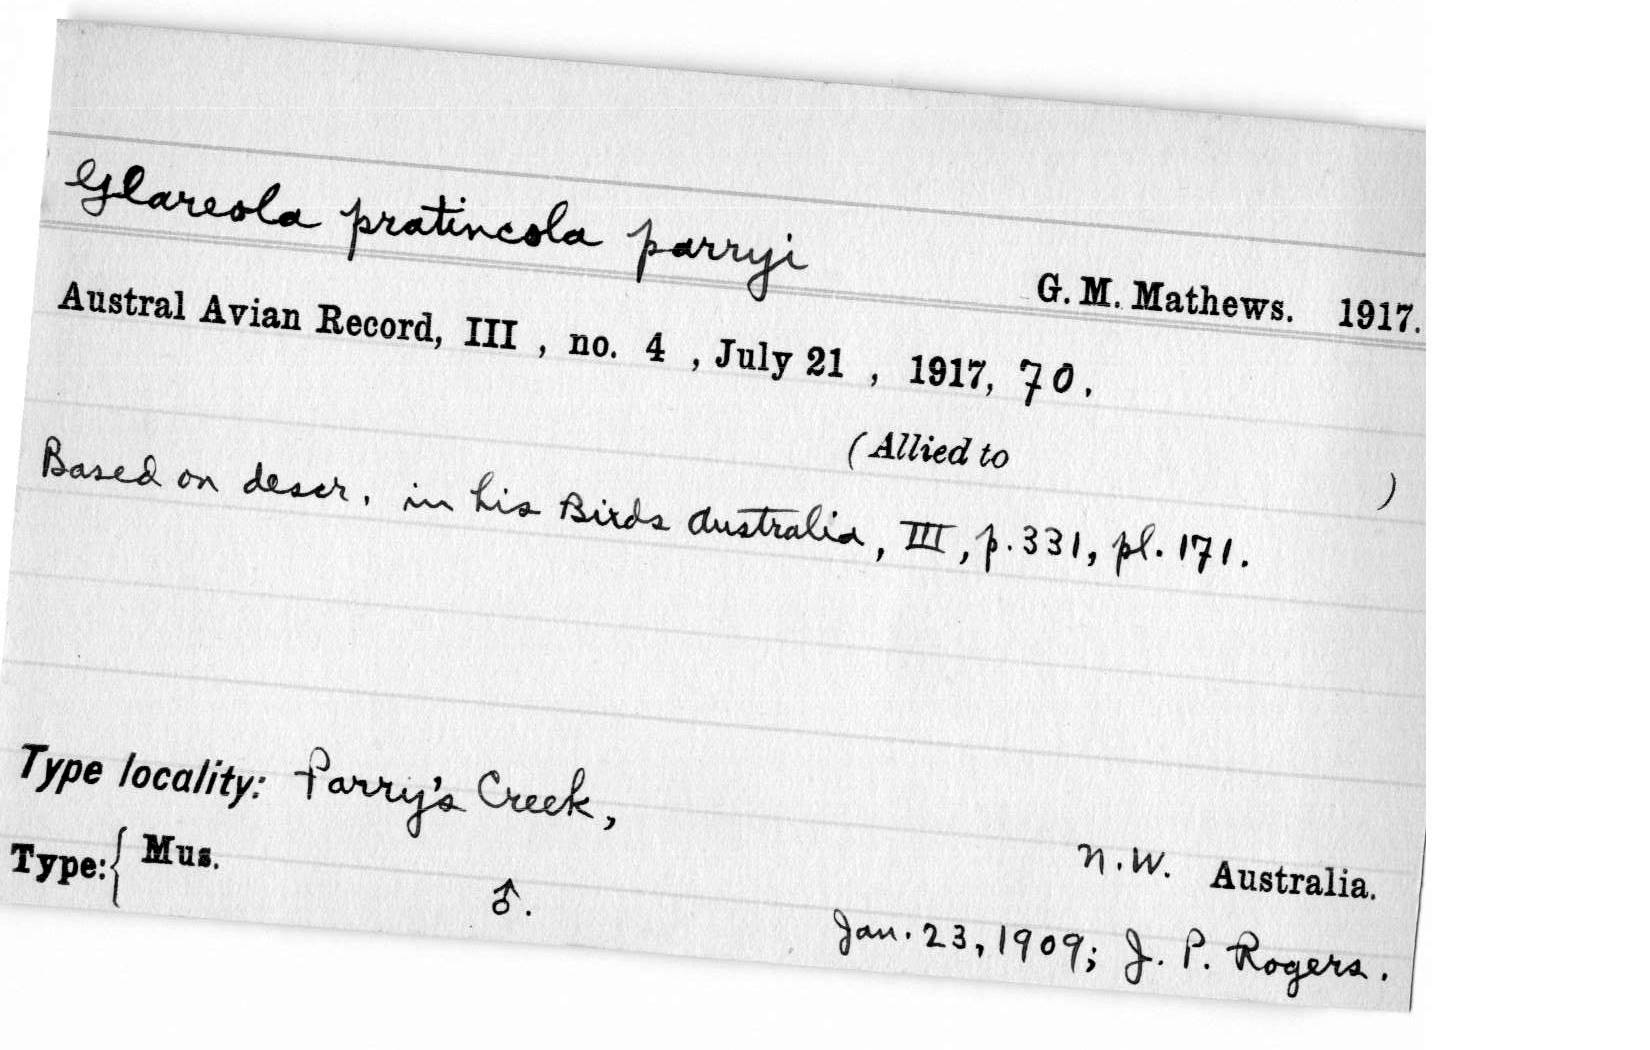 Glareola pratincola parryi
G. M. Mathews. 1917.
Austral Avian Record, III , no. 4 , July 21 , 1917, 70.
(Allied to )
Based on descr. in his Birds Australia, III, p. 331, pl. 171.
Type locality: Parry's Creek,
N.W. Australia.
Type: { Mus.
♂.
Jan. 23, 1909; J. P. Rogers.